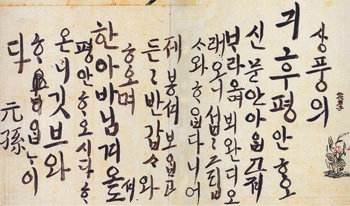 상풍의
긔후평안ᄒᆞ오
신문안아ᄋᆞᆸ고져
ᄇᆞ라오며뵈완디오
래오니섭섭그립
ᄉᆞ와ᄒᆞᄋᆞᆸ다니어
제봉셔보ᄋᆞᆸ고
든든반갑ᄉᆞ와
ᄒᆞ오며
한아바님겨오셔도
평안ᄒᆞ오시다ᄒᆞ
온니깃브와
ᄒᆞᄋᆞᆸᄂᆞ이
다
元孫